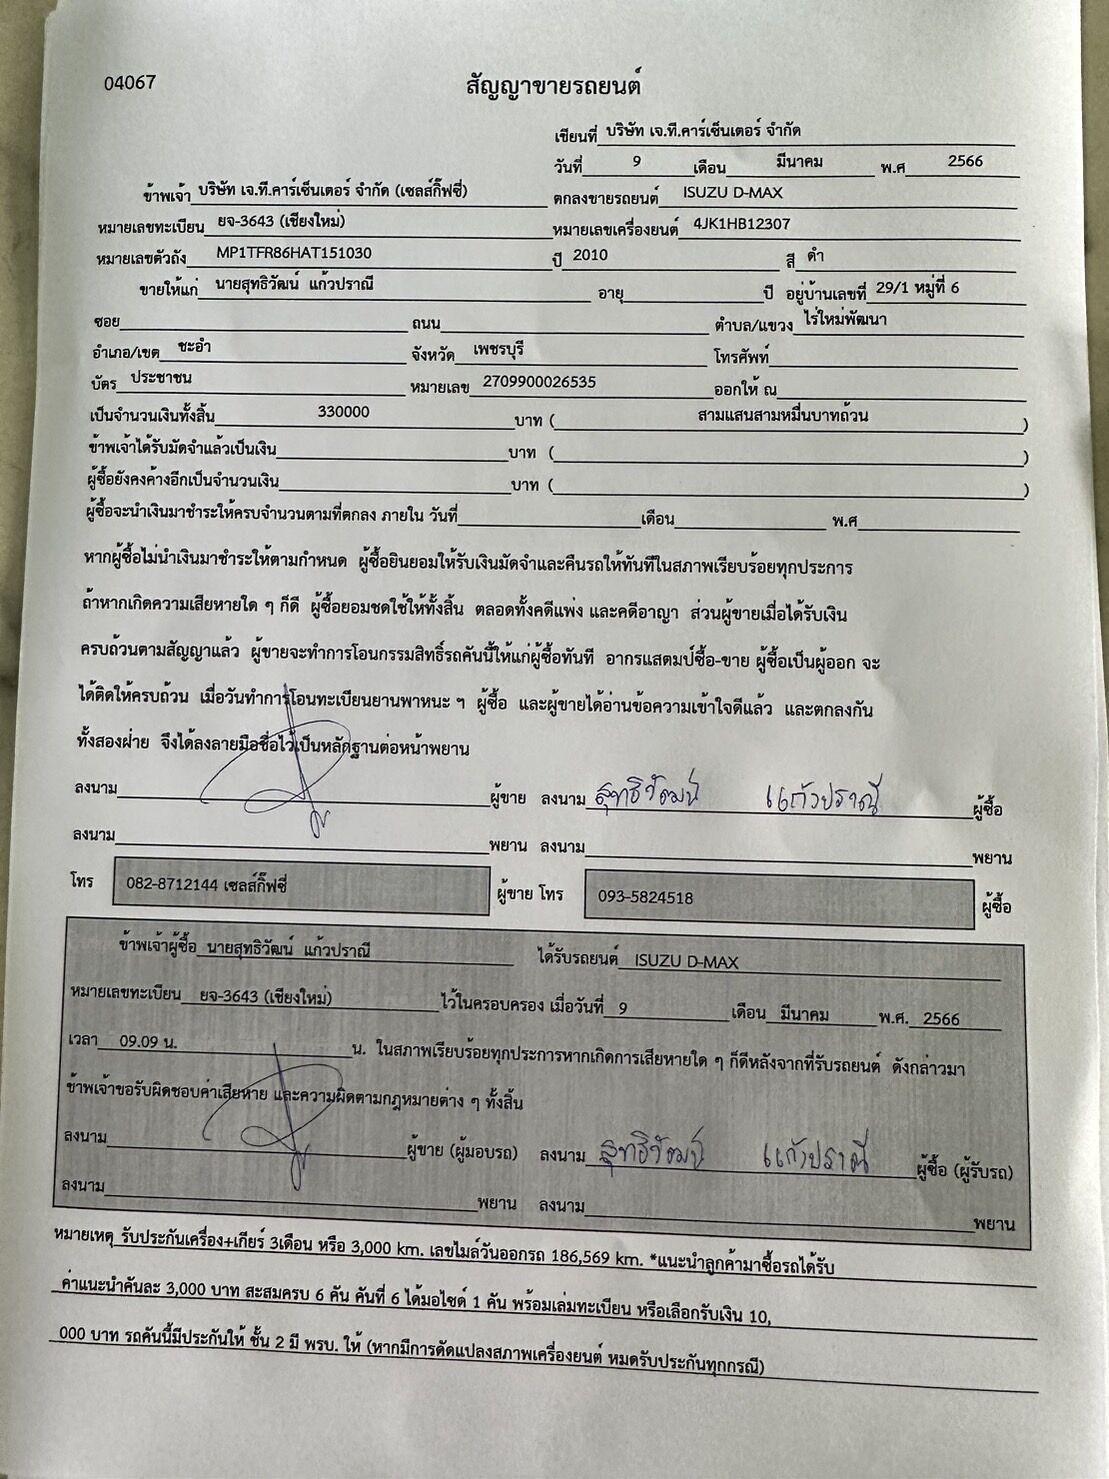 04067
สัญญาขายรถยนต์
เขียนที่ บริษัท เจ.ที.คาร์เซ็นเตอร์ จำกัด
วันที่ 9 เดือน มีนาคม พ.ศ 2566
ข้าพเจ้า บริษัท เจ.ที.คาร์เซ็นเตอร์ จำกัด (เซลส์กิ๊ฟซี่) ตกลงขายรถยนต์ ISUZU D-MAX
หมายเลขทะเบียน ยจ-3643 (เชียงใหม่) หมายเลขเครื่องยนต์ 4JK1HB12307
หมายเลขตัวถัง MP1TFR86HAT151030 ปี 2010 สี ดำ
ขายให้แก่ นายสุทธิวัฒน์ แก้วปราณี อายุ ปี อยู่บ้านเลขที่ 29/1 หมู่ที่ 6
ซอย ถนน ตำบล/แขวง ไร่ใหม่พัฒนา
อำเภอ/เขต ชะอำ จังหวัด เพชรบุรี โทรศัพท์
บัตร ประชาชน หมายเลข 2709900026535 ออกให้ ณ
เป็นจำนวนเงินทั้งสิ้น 330000 บาท ( สามแสนสามหมื่นบาทถ้วน )
ข้าพเจ้าได้รับมัดจำแล้วเป็นเงิน บาท ( )
ผู้ซื้อยังคงค้างอีกเป็นจำนวนเงิน บาท ( )
ผู้ซื้อจะนำเงินมาชำระให้ครบจำนวนตามที่ตกลง ภายใน วันที่ เดือน พ.ศ
หากผู้ซื้อไม่นำเงินมาชำระให้ตามกำหนด ผู้ซื้อยินยอมให้รับเงินมัดจำและคืนรถให้ทันทีในสภาพเรียบร้อยทุกประการ
ถ้าหากเกิดความเสียหายใด ๆ ก็ดี ผู้ซื้อยอมชดใช้ให้ทั้งสิ้น ตลอดทั้งคดีแพ่ง และคดีอาญา ส่วนผู้ขายเมื่อได้รับเงิน
ครบถ้วนตามสัญญาแล้ว ผู้ขายจะทำการโอนกรรมสิทธิ์รถคันนี้ให้แก่ผู้ซื้อทันที อากรแสตมป์ซื้อ-ขาย ผู้ซื้อเป็นผู้ออก จะ
ได้ติดให้ครบถ้วน เมื่อวันทำการโอนทะเบียนยานพาหนะ ฯ ผู้ซื้อ และผู้ขายได้อ่านข้อความเข้าใจดีแล้ว และตกลงกัน
ทั้งสองฝ่าย จึงได้ลงลายมือชื่อไว้เป็นหลักฐานต่อหน้าพยาน
ลงนาม ผู้ขาย ลงนาม สุทธิวัฒน์ แก้วปราณี ผู้ซื้อ
ลงนาม พยาน ลงนาม พยาน
โทร 082-8712144 เซลส์กิ๊ฟซี่ ผู้ขาย โทร 093-5824518 ผู้ซื้อ
ข้าพเจ้าผู้ซื้อ นายสุทธิวัฒน์ แก้วปราณี ได้รับรถยนต์ ISUZU D-MAX
หมายเลขทะเบียน ยจ-3643 (เชียงใหม่) ไว้ในครอบครอง เมื่อวันที่ 9 เดือน มีนาคม พ.ศ. 2566
เวลา 09.09 น. น. ในสภาพเรียบร้อยทุกประการหากเกิดการเสียหายใด ๆ ก็ดีหลังจากที่รับรถยนต์ ดังกล่าวมา
ข้าพเจ้าขอรับผิดชอบค่าเสียหาย และความผิดตามกฎหมายต่าง ๆ ทั้งสิ้น
ลงนาม ผู้ขาย (ผู้มอบรถ) ลงนาม สุทธิวัฒน์ แก้วปราณี ผู้ซื้อ (ผู้รับรถ)
ลงนาม พยาน ลงนาม พยาน
หมายเหตุ รับประกันเครื่อง+เกียร์ 3เดือน หรือ 3,000 km. เลขไมล์วันออกรถ 186,569 km. *แนะนำลูกค้ามาซื้อรถได้รับ
ค่าแนะนำคันละ 3,000 บาท สะสมครบ 6 คัน คันที่ 6 ได้มอไซด์ 1 คัน พร้อมเล่มทะเบียน หรือเลือกรับเงิน 10,
000 บาท รถคันนี้มีประกันให้ ชั้น 2 มี พรบ. ให้ (หากมีการดัดแปลงสภาพเครื่องยนต์ หมดรับประกันทุกกรณี)